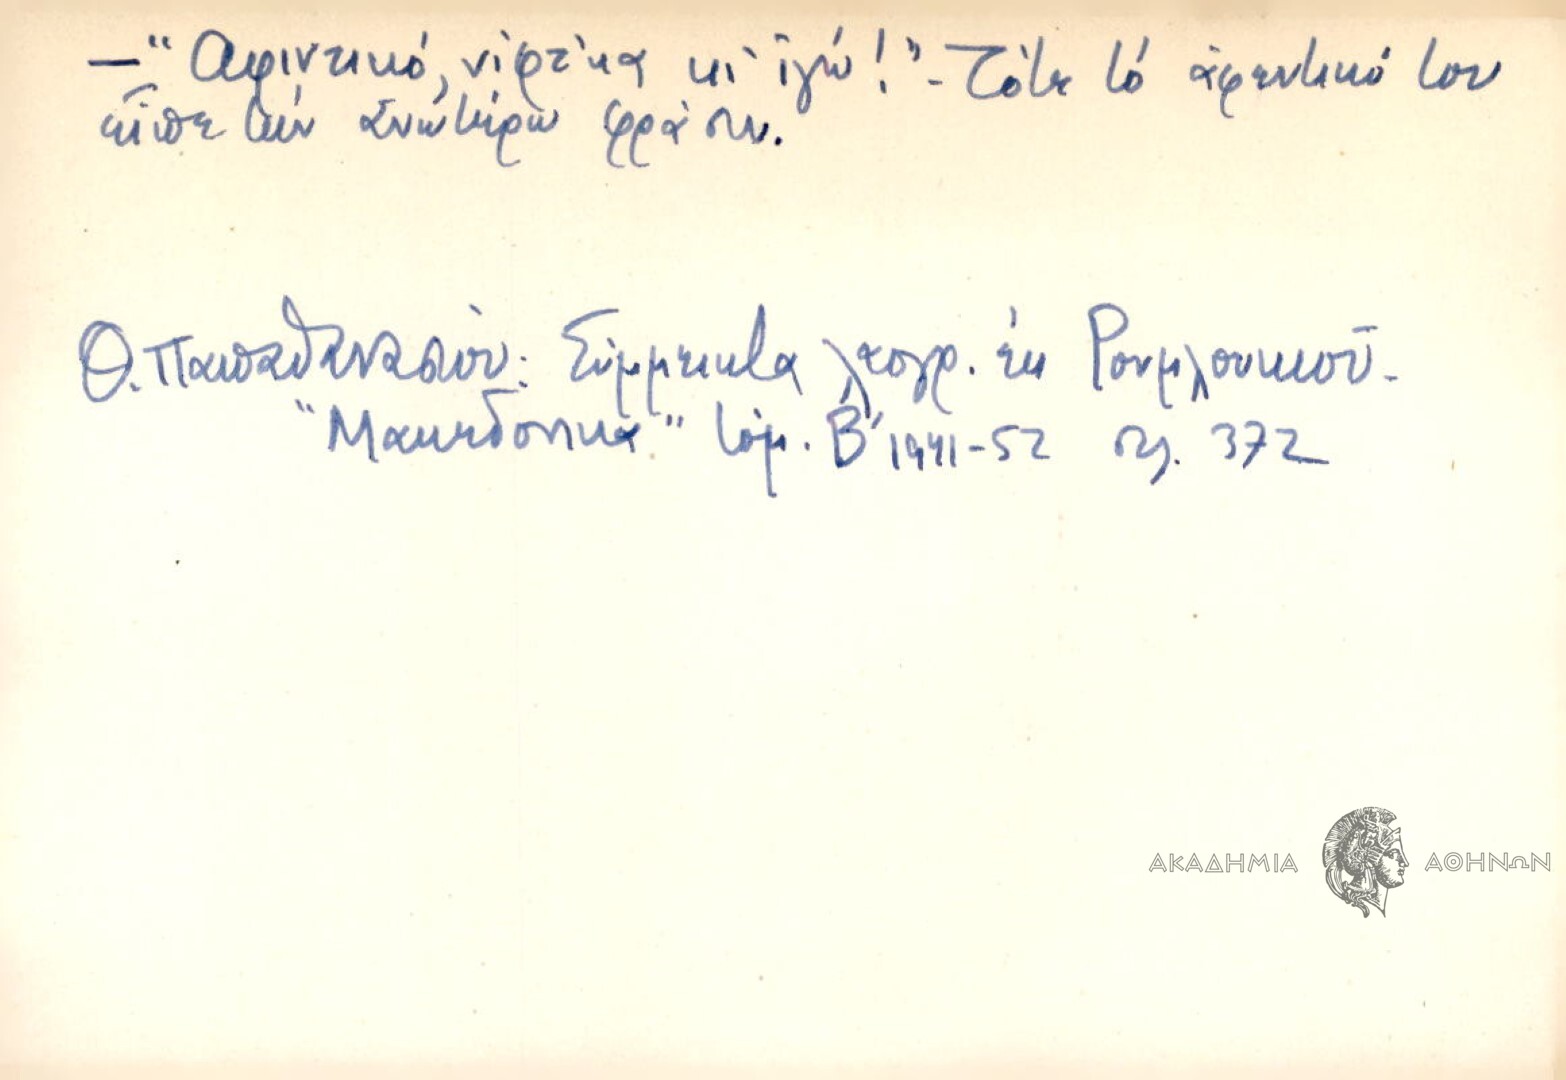 — "Αφιντικό, νίφτ'κα κι ἰγώ!" - Τότε τό ἀφεντικό του
εἶπε τήν ἀνωτέρω φράσιν.
Θ. Παπαθανασίου: Σύμμεικτα λαογρ. ἐκ Ρουμλουκιοῦ.
"Μακεδονικά" τόμ. Β' 1941-52 σελ. 372
ΑΚΑΔΗΜΙΑ ΑΘΗΝΩΝ